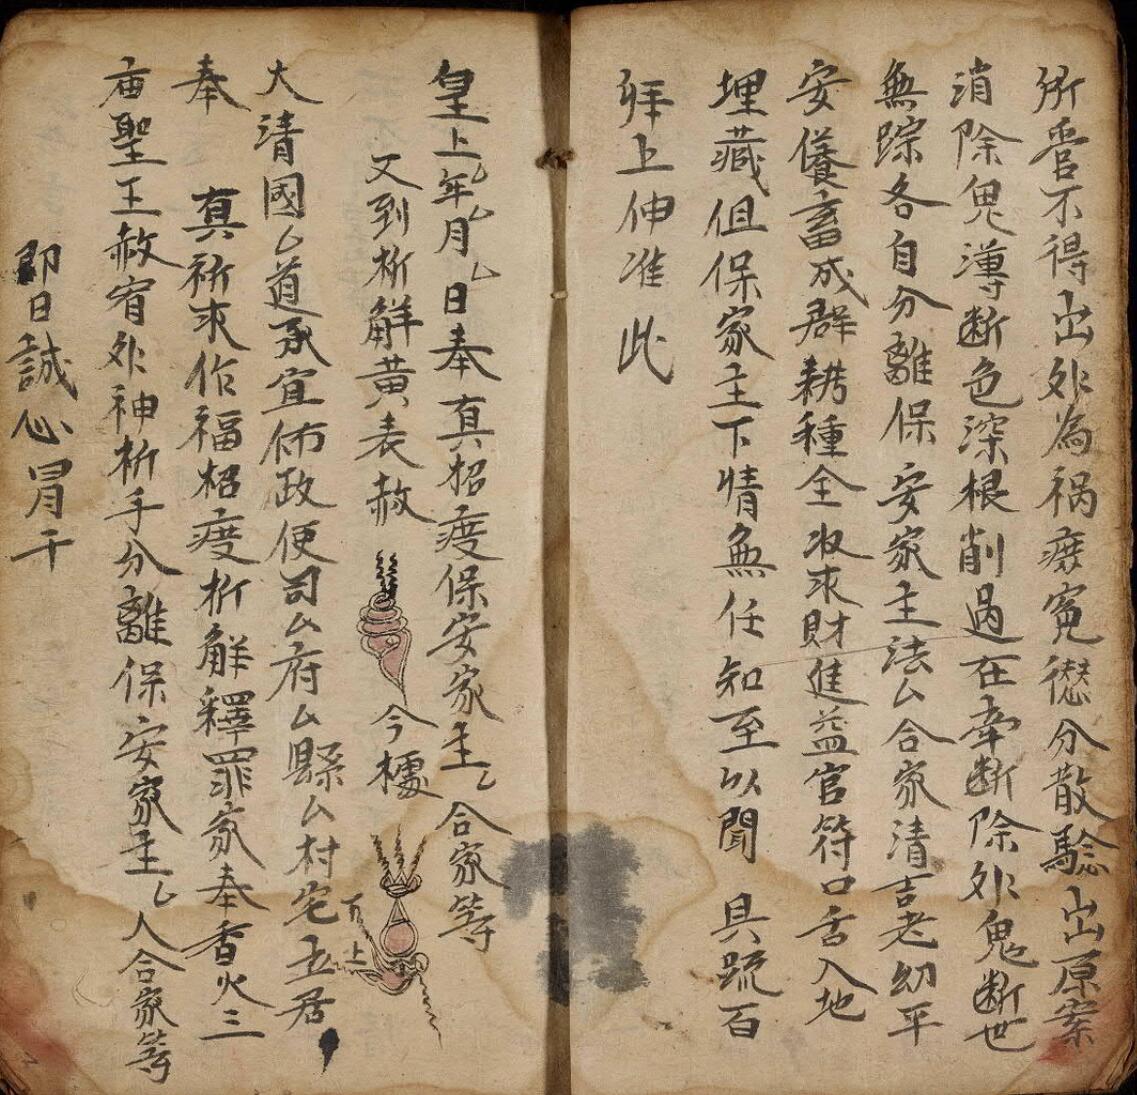 所管不得出外為祸㾱寃𠎀分散騐出原案
消除鬼薄断色深根削過在牵断除外鬼断世
無踪各自分離保安家主法厶合家清吉老幼平
安儀畜成群耕種全收求財進益官符口舌入地
埋藏但保家主下情無任知至以聞 具疏百
拜上伸准此
皇上乙年乙月乙日奉真招度保安家主乙合家等
又到析觧黄表赦 今㯫
大清國厶道承宜佈政使司厶府厶縣厶村宅立居
奉 真祈求作福招度析觧釋罪家奉香火三
庙聖王赦宥外神析手分離保安家主乙人合家等
即日誠心冒干